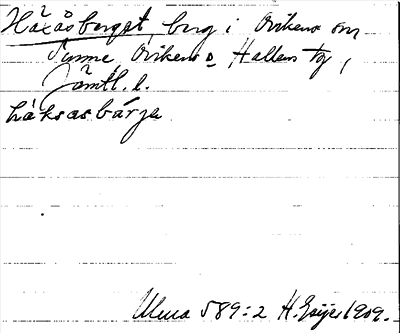 Håxåsberget, berg i Ovikens sn
Ovikens o Hallens tg,
Jämtl. l.
håksasbärje
589:2 H. Geijer 1909.